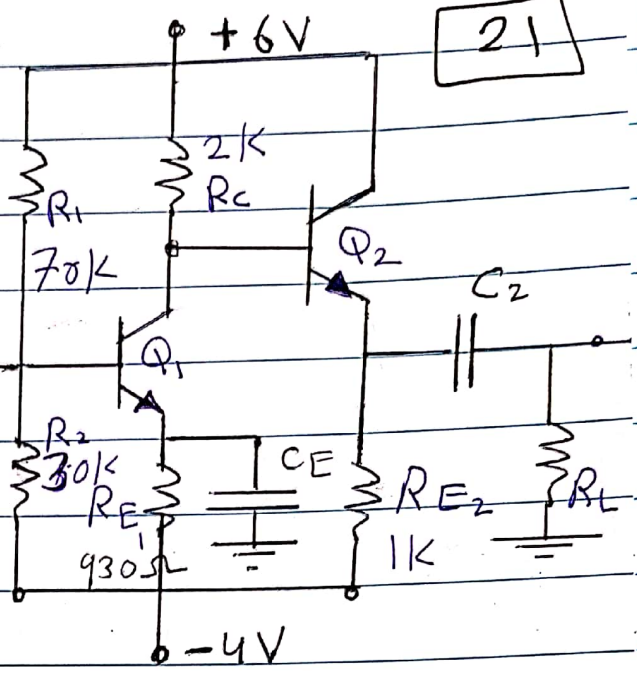 +6V
21
2K
R1
Rc
70K
Q2
C2
Q1
R2
30K
CE
RE1
RE2
RL
930Ω
1K
-4V